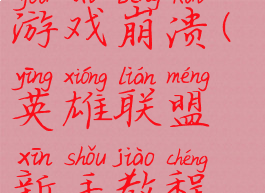 yóu xì bēng kuì
游戏崩溃(
yīng xióng lián méng
英雄联盟
xīn shǒu jiào chéng
新手教程